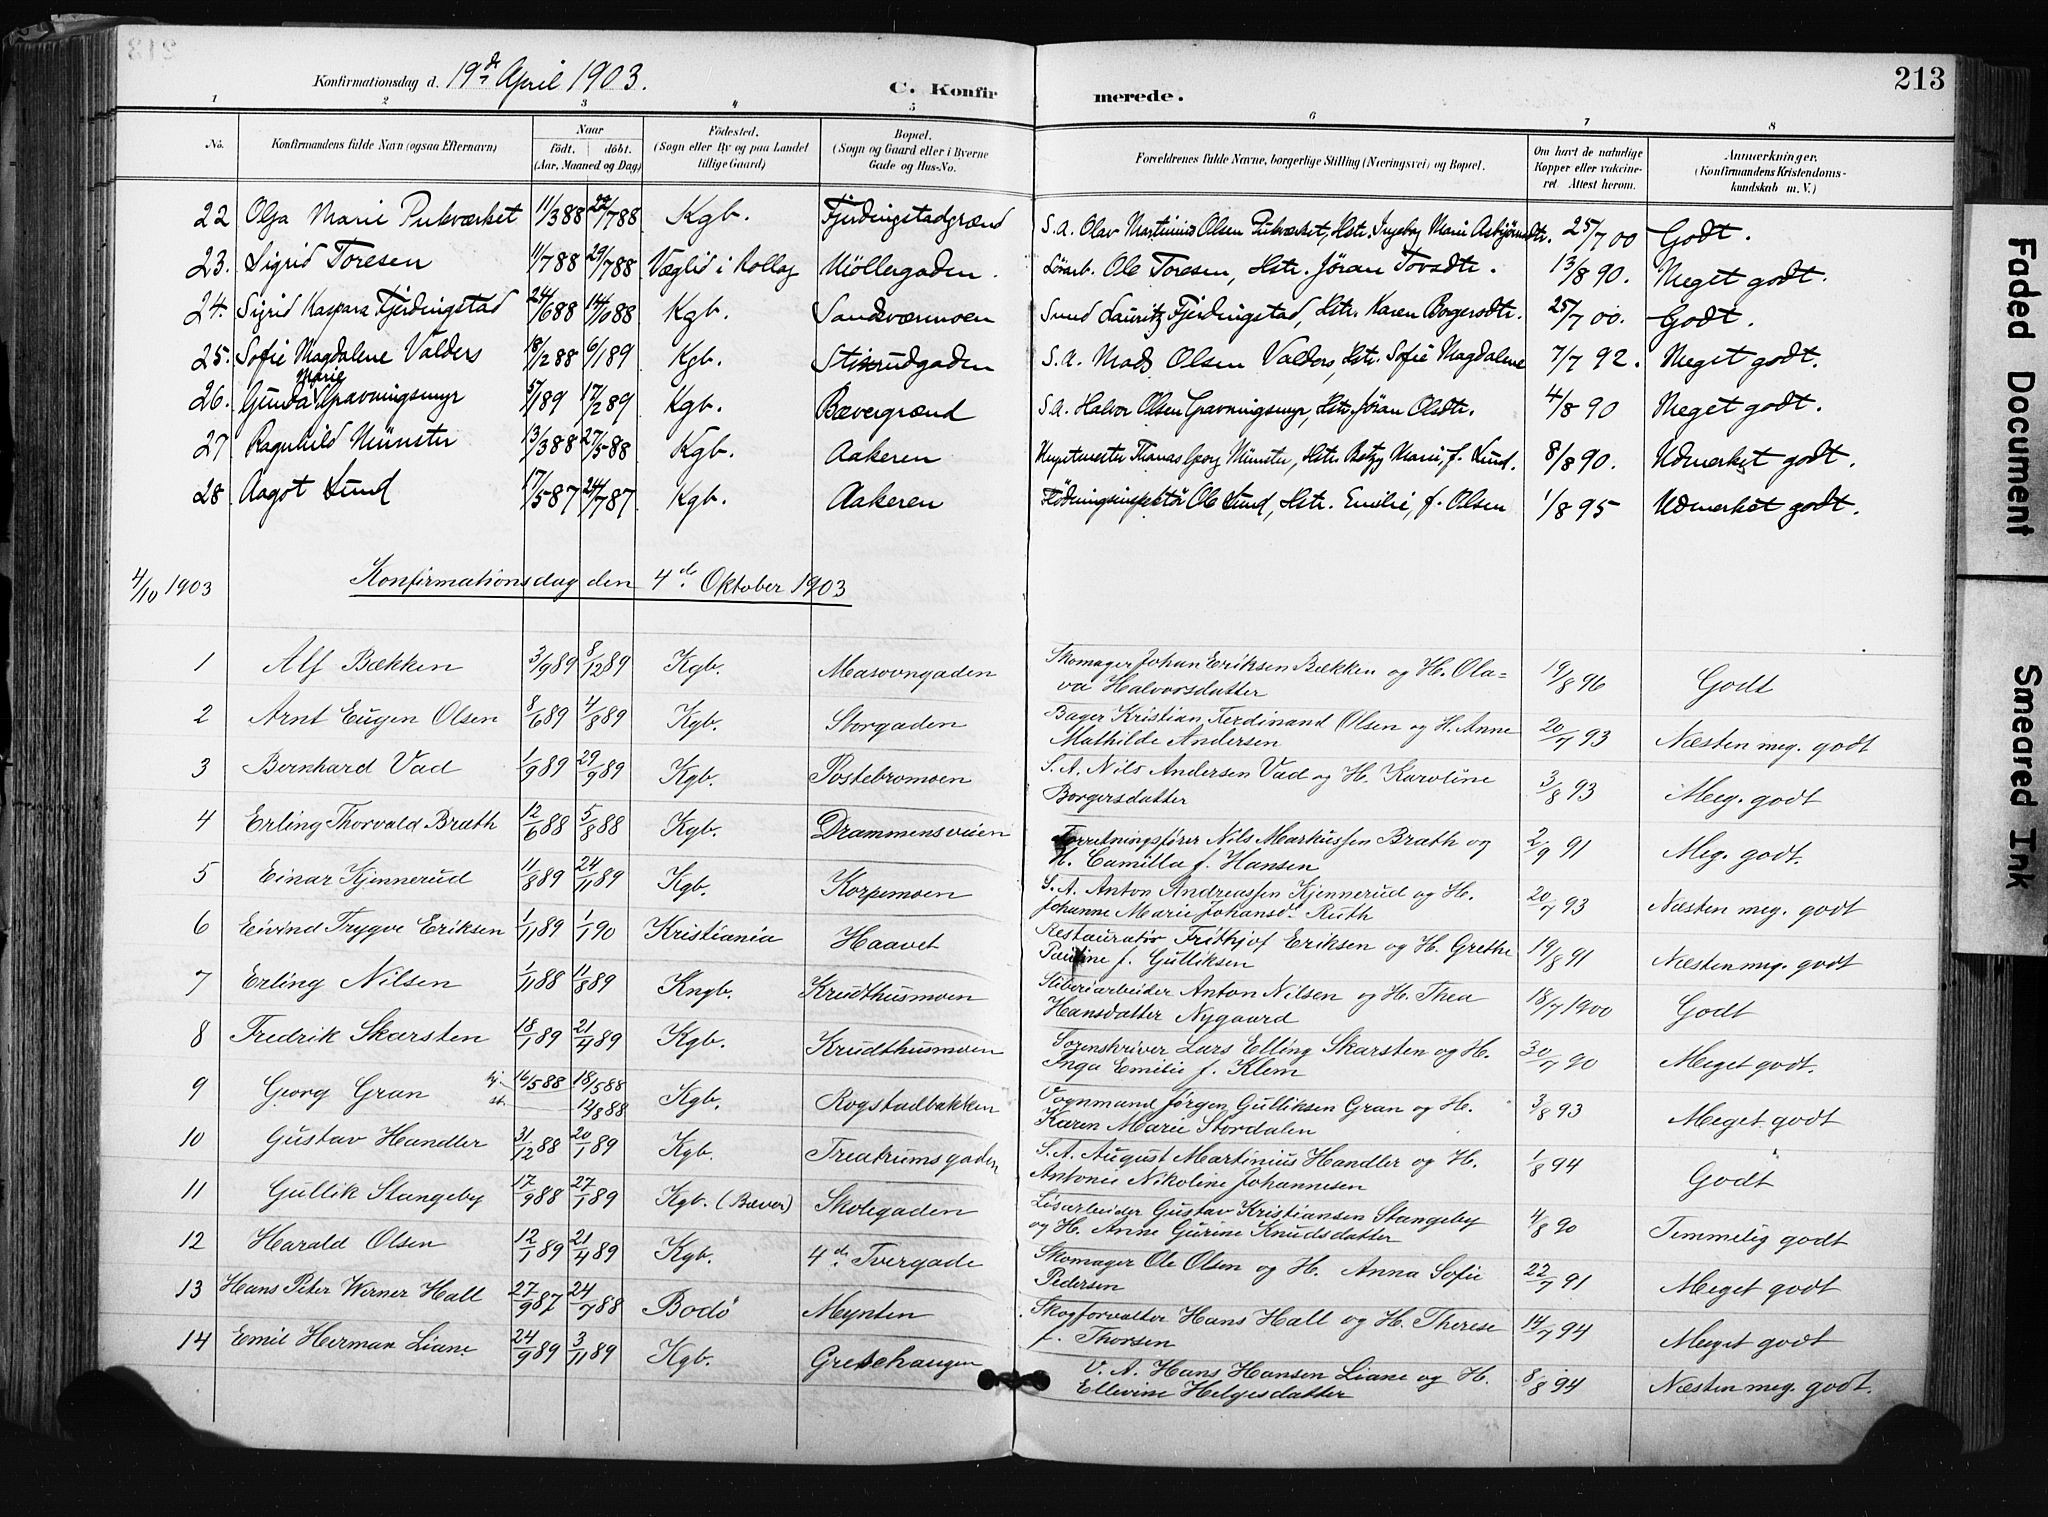 213
Konfirmationsdag d. 19de April 1903.
C. Konfirmerede.
1 2 3 4 5 6 7 8
No.
Konfirmandens fulde Navn (ogsaa Efternavn)
Naar
født. døbt.
(Aar, Maaned og Dag)
Fødested.
(Sogn eller By og paa Landet
tillige Gaard)
Bopæl.
(Sogn og Gaard eller i Byerne
Gade og Hus-No.
Forældrenes fulde Navne, borgerlige Stilling (Næringsvei) og Bopæl.
Om havt de naturlige
Kopper eller vakcine-
ret Attest herom.
Anmerkninger.
(Konfirmandens Kristendoms-
kundskab m. V.)
22 Olga Marie Pukværket 11/3 88 22/7 88 Kgb. Fjerdingstadgrænd S. A. Olav Martinius Olsen Pukværket, Hstr. Ingeborg Marie Asbjørnsdtr. 25/7 00 Godt.
23. Sigrid Toresen 1/7 88 29/7 88 Væglid i Rollag Møllergaden. Lösarb. Ole Toresen, Hstr. Jöran Tovsdtr. 13/8 90. Meget godt.
24. Sigrid Kaspara Fjerdingstad 24/6 88 14/10 88 Kgb. Sandsværmoen Smed Lauritz Fjerdingstad, Hstr. Karen Borgersdtr. 25/7 00. Godt.
25. Sofie Magdalene Valders 18/12 88 6/1 89 Kgb. Stinrudgaden S. A. Mads Olsen Valders, Hstr. Sofie Magdalene 7/7 92. Meget godt.
26. Gunda Marie Gravningsmyr 5/1 89 17/2 89 Kgb. Bævergrænd S. A. Halvor Olsen Gravningsmyr, Hstr. Jöran Olsdtr. 4/8 90 Meget godt.
27 Ragnhild Münster 13/3 88 27/5 88 Kgb. Aakeren Hyttemester Thomas Georg Münster, Hstr. Betzy Marie, f. Lund. 8/8 90. Udmerket godt.
28 Aagot Lund 17/5 87 24/7 87 Kgb. Aakeren Flødningsinspektör Ole Lund, Hstr. Emilie, f. Olsen 1/8 95 Udmerket godt.
4/10 1903 Konfirmationsdag den 4de Oktober 1903
1 Alf Bækken 3/9 89 8/12 89 Kgb. Masovngaden Skomager Johan Eriksen Bækken og H. Ola-
va Halvorsdatter 19/8 96 Godt
2 Arnt Eugen Olsen 8/6 89 4/8 89 Kgb. Storgaden Bager Kristian Ferdinand Olsen og H. Anne
Mathilde Andersen 20/7 93 Næsten meg. godt
3 Bernhard Vad 1/9 89 29/9 89 Kgb. Postebromoen S. A. Nils Andersen Vad og H. Karoline
Borgersdatter 3/8 93 Meg. godt
4 Erling Thorvald Bræth 12/6 88 5/8 88 Kgb. Drammensveien Forretningsfører Nils Markussen Bræth og
H. Camilla f. Hansen 2/9 91 Meg. godt.
5 Einar Kjennerud 11/8 89 24/11 89 Kgb. Korpemoen S. A. Anton Andreassen Kjennerud og H.
Johanne Marie Johansd. Ruth 20/7 93 Næsten meg. godt
6 Eivind Trygve Eriksen 1/11 89 1/1 90 Kristiania Haavet Restauratør Frithjof Eriksen og H. Grethe
Pauline f. Gulliksen 19/8 91 Næsten meg. godt
7 Erling Nilsen 1/11 88 11/8 89 Kngb. Krudthusmoen Sliberiarbeider Anton Nilsen og H. Thea
Hansdatter Nygaard 18/7 1900 Godt
8 Fredrik Skarsten 18/1 89 21/4 89 Kgb. Krudthusmoen Sorenskriver Lars Elling Skarsten og H.
Inga Emilie f. Klem 30/7 90 Meget godt.
9 Georg Gran hj. 16/5 88 18/5 88
st. 12/8 88 Kgb. Rogstadbakken Vognmand Jørgen Gulliksen Gran og H.
Karen Marie Stordalen 3/8 93 Meget godt
10 Gustav Handler 31/12 88 20/1 89 Kgb. Treatrumsgaden S. A. August Martinius Handler og H.
Antonie Nikoline Johannesen 1/8 94 Godt
11 Gullik Stangeby 17/9 88 27/1 89 Kgb. (Bæver) Skolegaden Løsarbeider Gustav Kristiansen Stangeby
og H. Anne Gurine Knudsdatter 4/8 90 Temmelig godt
12 Harald Olsen 12/1 89 21/4 89 Kgb. 4de Tvergade Skomager Ole Olsen og H. Anna Sofie
Pedersen 22/7 91 Meget godt
13 Hans Peter Werner Hall 27/9 87 24/7 88 Bodø Mynten Skogforvalter Hans Hall og H. Therese
f. Thorsen 14/7 94 Meget godt
14 Emil Herman Liane 24/9 89 3/11 89 Kgb. Gretehaugen V. A. Hans Hansen Liane og H.
Ellevine Helgesdatter 8/8 94 Næsten meg. godt.
Faded Document
Smeared Ink